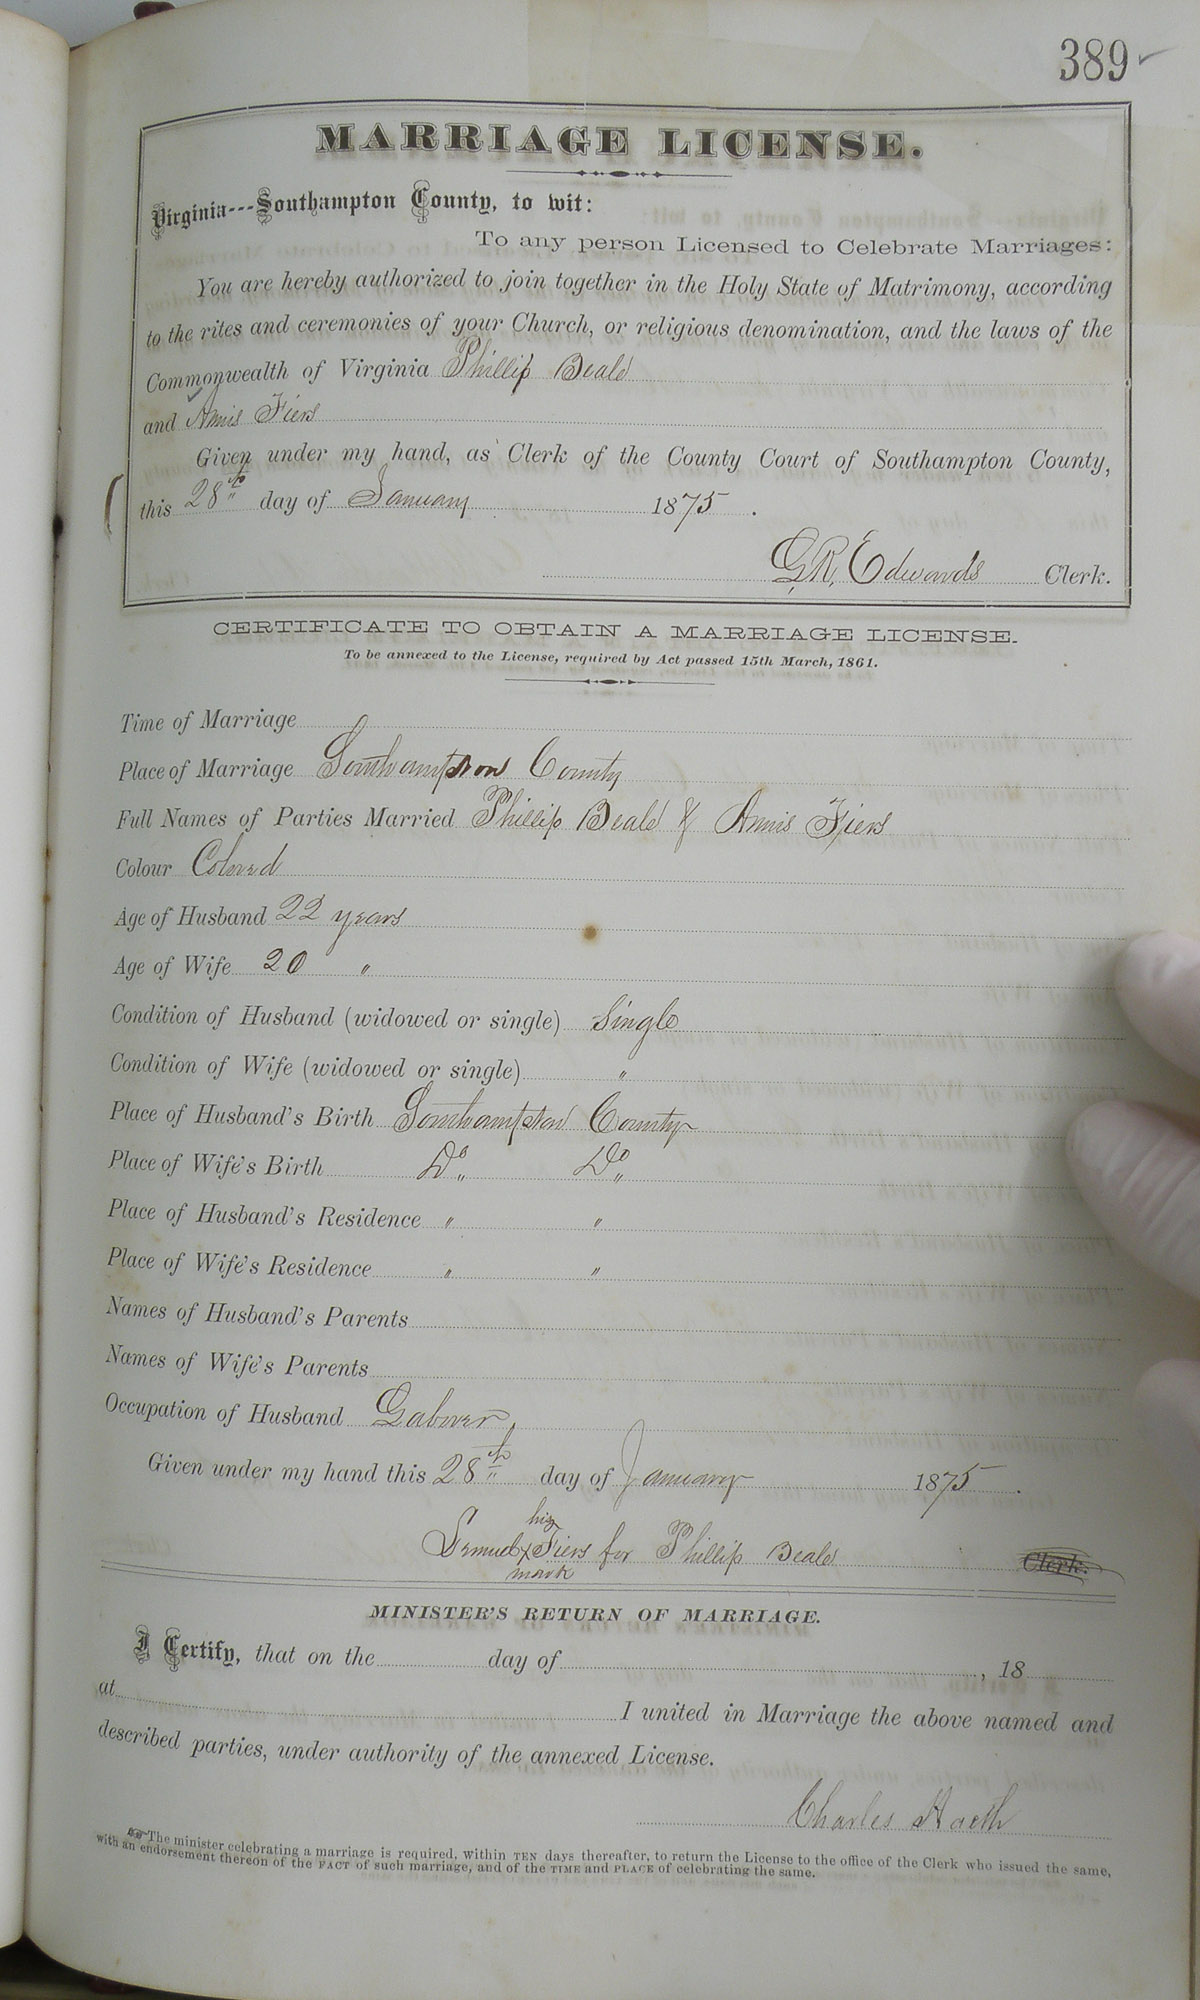 389
MARRIAGE LICENSE.
Virginia---Southampton County, to wit:
To any person Licensed to Celebrate Marriages:
You are hereby authorized to join together in the Holy State of Matrimony, according
to the rites and ceremonies of your Church, or religious denomination, and the laws of the
Commonwealth of Virginia Phillip Beale
and Annis Fiers
Given under my hand, as Clerk of the County Court of Southampton County,
this 28th day of January 1875.
G.R. Edwards Clerk.
CERTIFICATE TO OBTAIN A MARRIAGE LICENSE.
To be annexed to the License, required by Act passed 15th March, 1861.
Time of Marriage
Place of Marriage Southampton County
Full Names of Parties Married Phillip Beale & Annis Fiers
Colour Colored
Age of Husband 22 years
Age of Wife 20 "
Condition of Husband (widowed or single) Single
Condition of Wife (widowed or single) "
Place of Husband's Birth Southampton County
Place of Wife's Birth Do Do
Place of Husband's Residence " "
Place of Wife's Residence " "
Names of Husband's Parents
Names of Wife's Parents
Occupation of Husband Laborer
Given under my hand this 28th day of January 1875.
his
Samuel x Fiers for Phillip Beale Clerk.
mark
MINISTER'S RETURN OF MARRIAGE.
I Certify, that on the day of , 18
at I united in Marriage the above named and
described parties, under authority of the annexed License.
Charles
☞ The minister celebrating a marriage is required, within TEN days thereafter, to return the License to the office of the Clerk who issued the same,
with an endorsement thereon of the FACT of such marriage, and of the TIME and PLACE of celebrating the same.